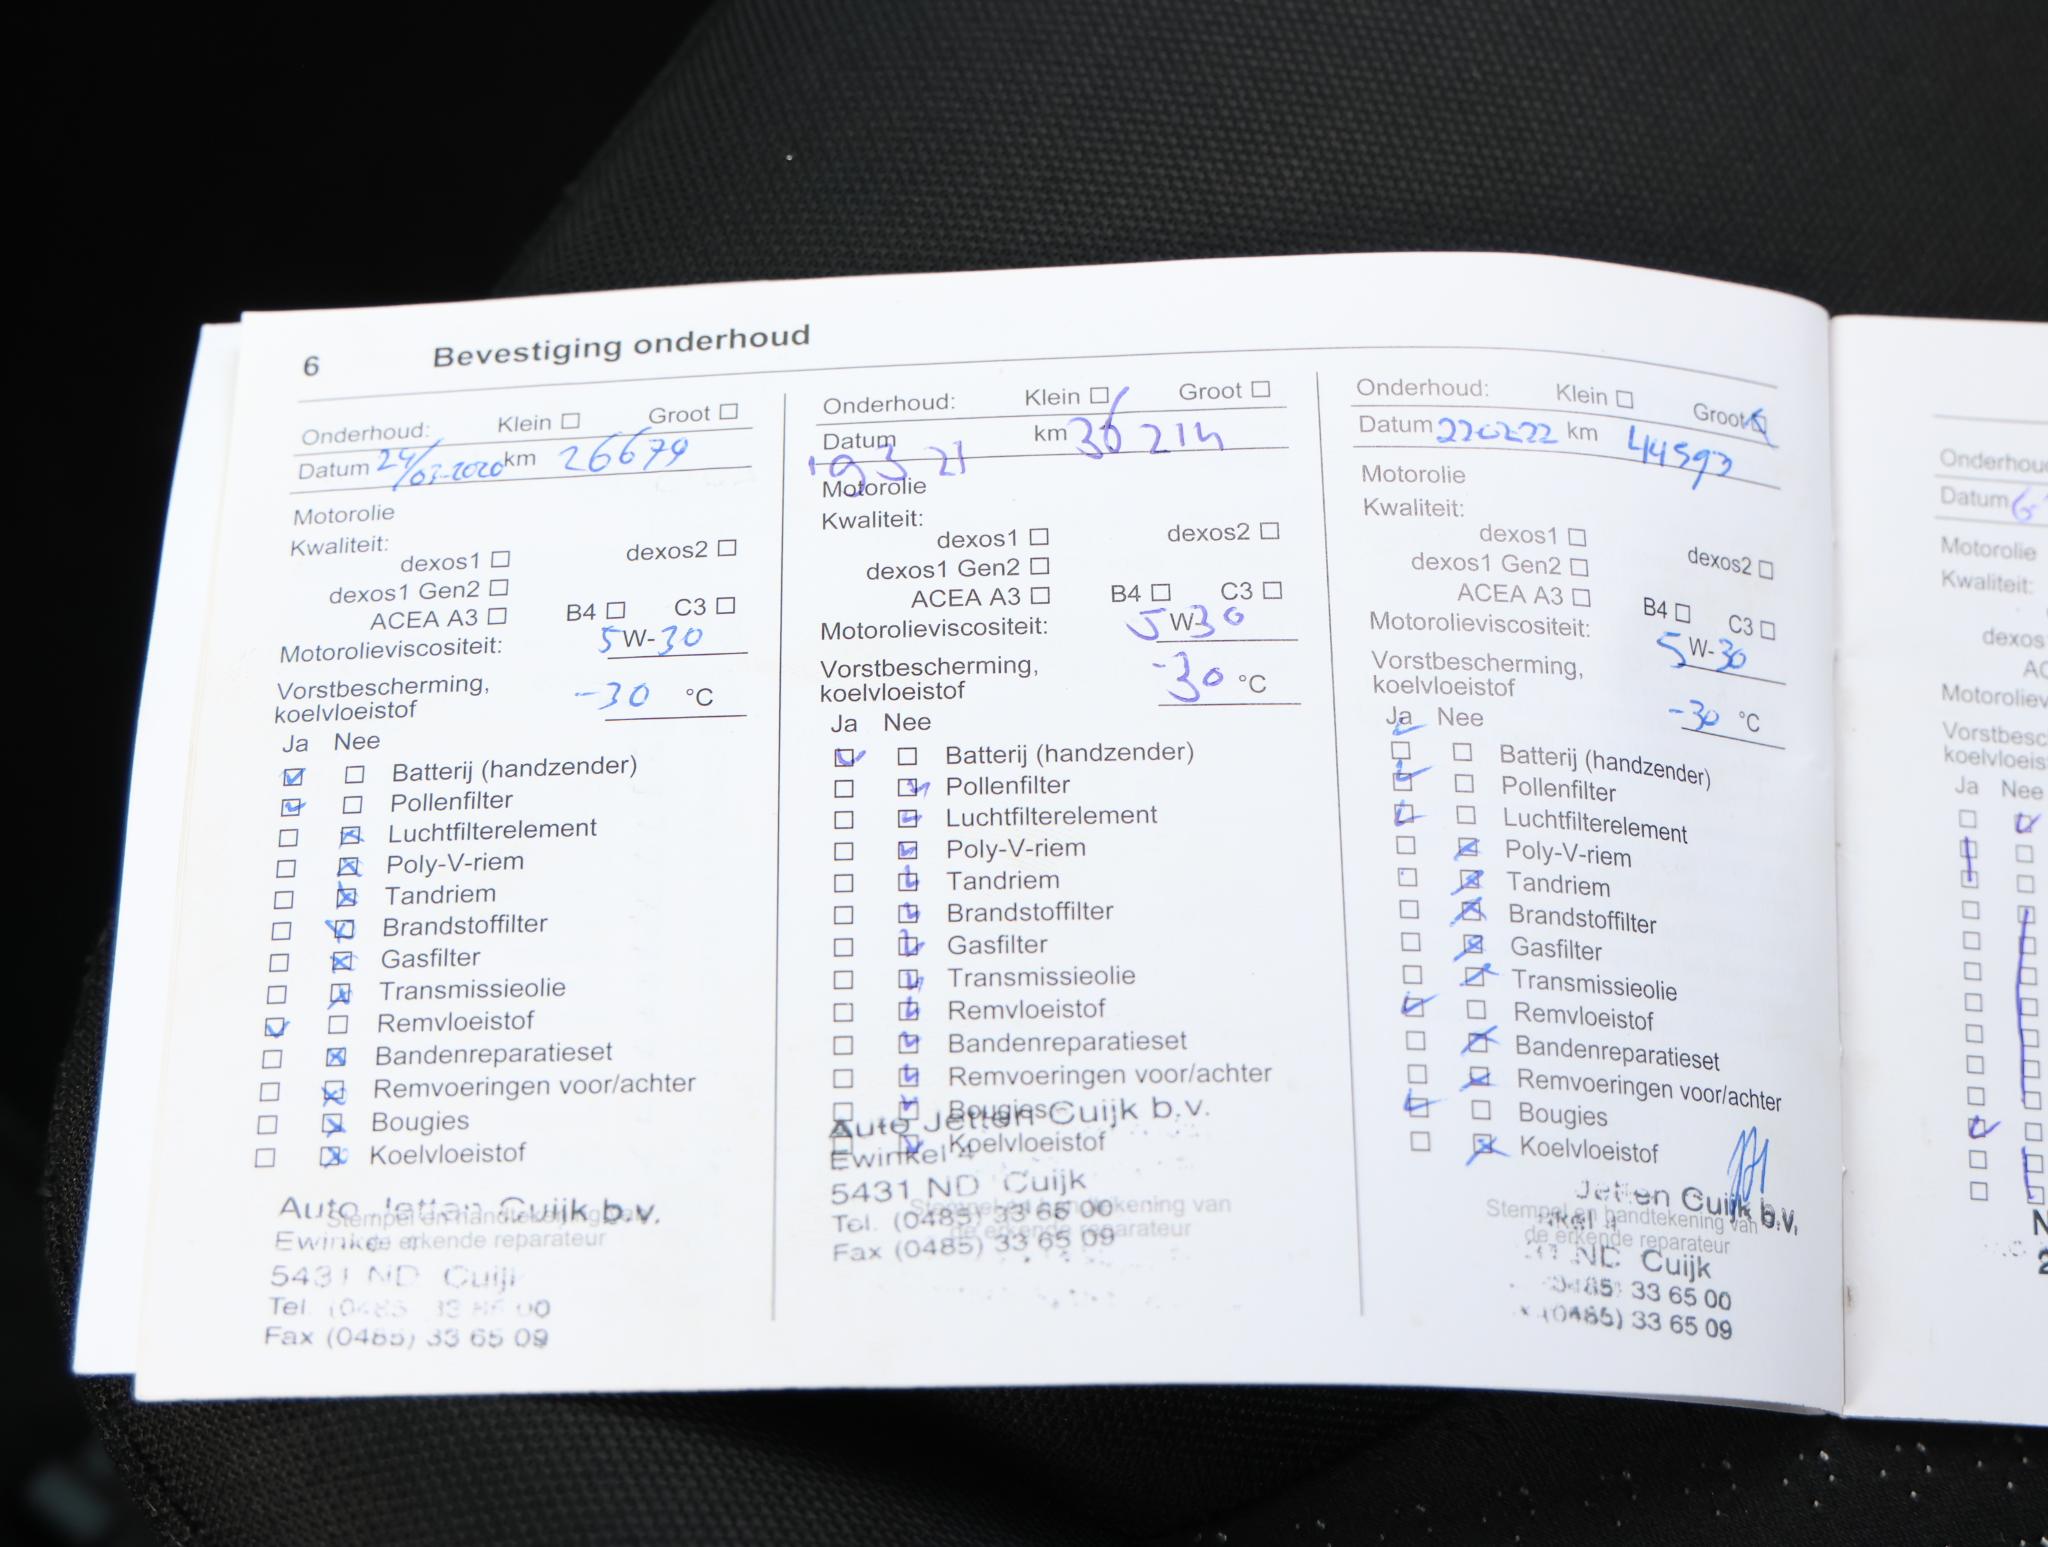 6 Bevestiging onderhoud
Onderhoud: Klein Groot
Datum 24/03-2020 km 26679
Motorolie
Kwaliteit:
dexos1 dexos2
dexos1 Gen2
ACEA A3 B4 C3
Motorolieviscositeit: 5 W-30
Vorstbescherming,
koelvloeistof -30 °C
Ja Nee
Batterij (handzender)
Pollenfilter
Luchtfilterelement
Poly-V-riem
Tandriem
Brandstoffilter
Gasfilter
Transmissieolie
Remvloeistof
Bandenreparatieset
Remvoeringen voor/achter
Bougies
Koelvloeistof
Stempel en handtekening van
de erkende reparateur
Auto Jetten Cuijk b.v.
Ewinkel 4
5431 ND Cuijk
Tel. (0485) 33 65 00
Fax (0485) 33 65 09
Onderhoud: Klein Groot
Datum km 36214
19 3 21
Motorolie
Kwaliteit:
dexos1 dexos2
dexos1 Gen2
ACEA A3 B4 C3
Motorolieviscositeit: 5 W-30
Vorstbescherming,
koelvloeistof -30 °C
Ja Nee
Batterij (handzender)
Pollenfilter
Luchtfilterelement
Poly-V-riem
Tandriem
Brandstoffilter
Gasfilter
Transmissieolie
Remvloeistof
Bandenreparatieset
Remvoeringen voor/achter
Bougies
Koelvloeistof
Stempel en handtekening van
de erkende reparateur
Auto Jetten Cuijk b.v.
Ewinkel 4
5431 ND Cuijk
Tel. (0485) 33 65 00
Fax (0485) 33 65 09
Onderhoud: Klein Groot
Datum 220222 km 44593
Motorolie
Kwaliteit:
dexos1 dexos2
dexos1 Gen2
ACEA A3 B4 C3
Motorolieviscositeit: 5 W-30
Vorstbescherming,
koelvloeistof -30 °C
Ja Nee
Batterij (handzender)
Pollenfilter
Luchtfilterelement
Poly-V-riem
Tandriem
Brandstoffilter
Gasfilter
Transmissieolie
Remvloeistof
Bandenreparatieset
Remvoeringen voor/achter
Bougies
Koelvloeistof
Stempel en handtekening van
de erkende reparateur
Jetten Cuijk b.v.
nkel 4
ND Cuijk
0485) 33 65 00
x (0485) 33 65 09
Onderhoud
Datum 6
Motorolie
Kwaliteit:
dexos
AC
Motoroliev
Vorstbesc
koelvloeist
Ja Nee
N
2